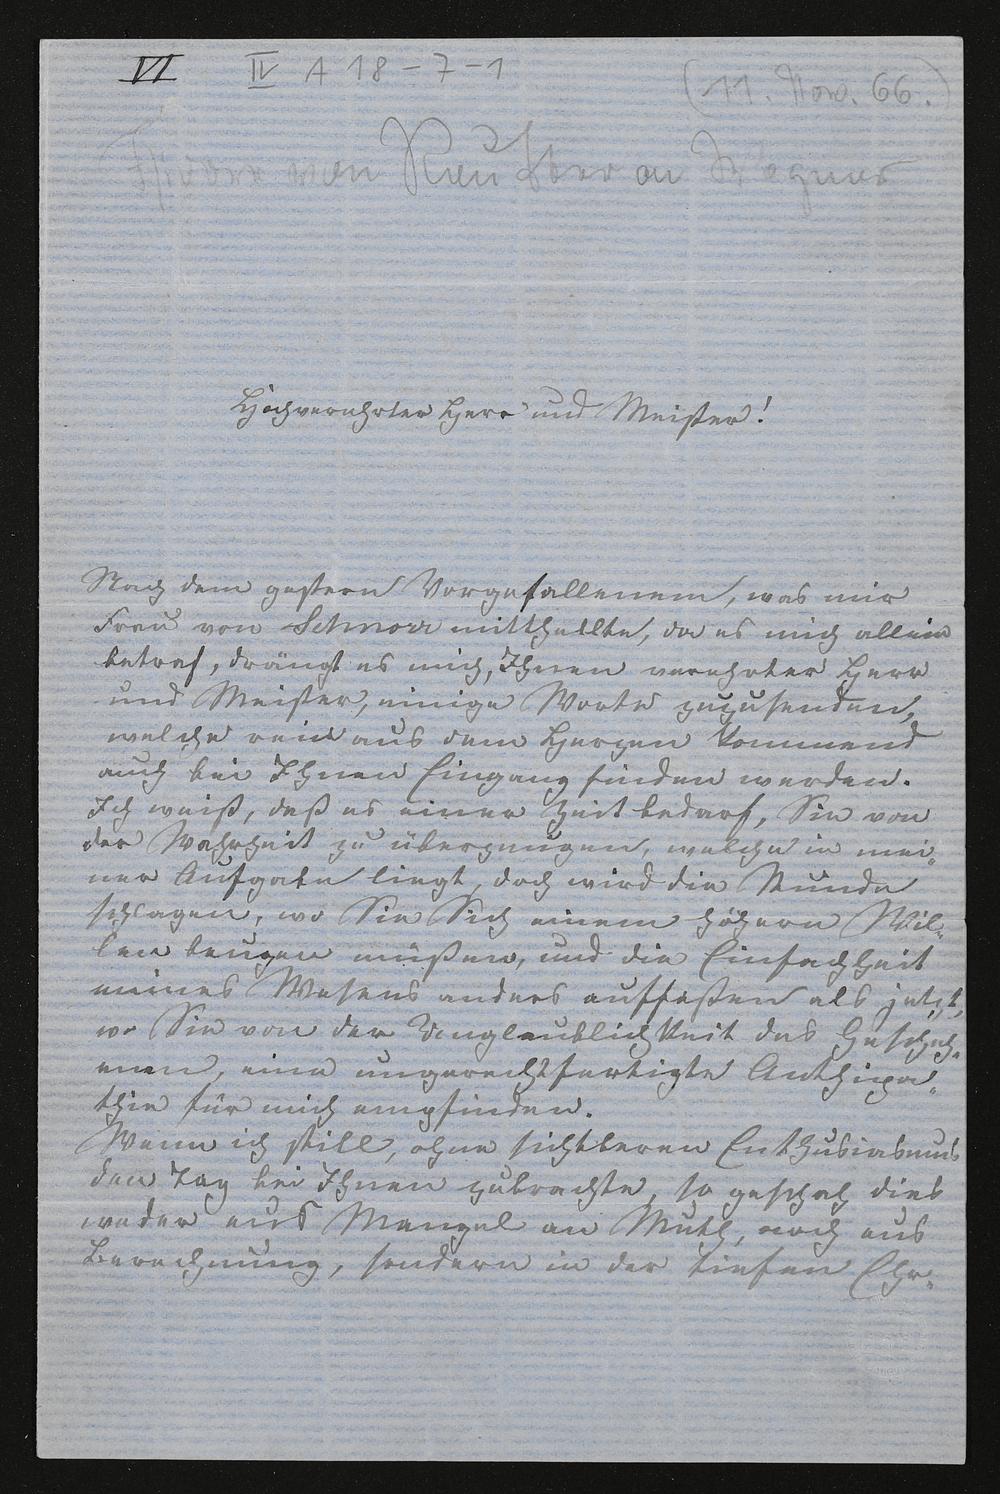 VI IV A 18-7-1
(11. Nov. 66.)
von Reutter an Wagner
Hochverehrter Herr und Meister!
Nach dem gestern Vorgefallenem, was mir
Frau von Schnorr mittheilte, da es mich allein
betraf, drängt es mich, Ihnen verehrter Herr
und Meister, einige Worte zuzusenden,
welche rein aus dem Herzen kommend
auch bei Ihnen Eingang finden werden.
Ich weiß, daß es einer Zeit bedarf, Sie von
der Wahrheit zu überzeugen, welche in mei-
ner Aufgabe liegt, doch wird die Stunde
schlagen, wo Sie Sich einem höhern Wil-
len beugen müßen, und die Einfachheit
meines Wesens anders auffaßen als jetzt,
wo Sie von der Unglaublichkeit des Gescheh-
enen, eine ungerechtfertigte Anthipa-
thie für mich empfinden.
Wenn ich still, ohne sichtbaren Enthusiasmus
den Tag bei Ihnen zubrachte, so geschah dies
weder aus Mangel an Muth, noch aus
Berechnung, sondern in der tiefen Ehr-